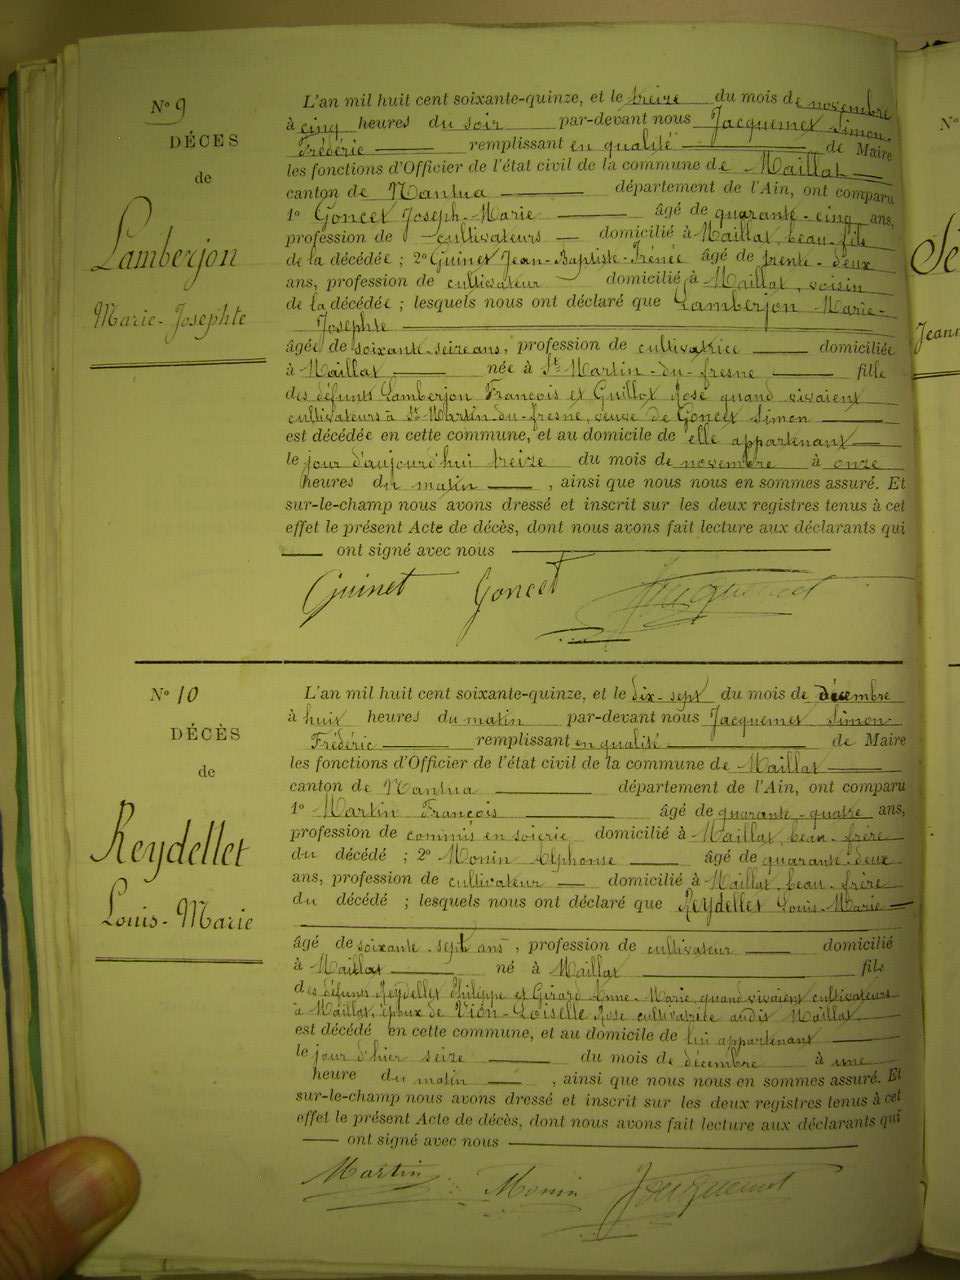 N° 9
DÉCES
de
Lamberjon
Marie-Josephte
L'an mil huit cent soixante-quinze, et le treize du mois de novembre
à cinq heures du soir par-devant nous Jacquemet Simon-
Frédéric remplissant en qualité de Maire
les fonctions d'Officier de l'état civil de la commune de Maillat
canton de Nantua département de l'Ain, ont comparu
1° Goncet Joseph-Marie âgé de quarante-cinq ans,
profession de cultivateurs domicilié à Maillat, beau-fils
de la décédée ; 2° Guinet Jean-Baptiste-Irénée âgé de trente-deux
ans, profession de cultivateur domicilié à Maillat, voisin
de la décédée ; lesquels nous ont déclaré que Lamberjon Marie-
Josephte
âgée de soixante-seize ans, profession de cultivatrice domiciliée
à Maillat née à St Martin-du-fresne fille
des défunts Lamberjon François et Guillot Rose quand vivaient
cultivateurs à St Martin-du-fresne, veuve de Goncet Simon
est décédée en cette commune, et au domicile de elle appartenant
le jour d'aujourd'hui treize du mois de novembre à onze
heures du matin , ainsi que nous nous en sommes assuré. Et
sur-le-champ nous avons dressé et inscrit sur les deux registres tenus à cet
effet le présent Acte de décès, dont nous avons fait lecture aux déclarants qui
ont signé avec nous
Guinet Goncet Jacquemet
N° 10
DÉCÈS
de
Reydellet
Louis-Marie
L'an mil huit cent soixante-quinze, et le dix-sept du mois de décembre
à huit heures du matin par-devant nous Jacquemet Simon-
Frédéric remplissant en qualité de Maire
les fonctions d'Officier de l'état civil de la commune de Maillat
canton de Nantua département de l'Ain, ont comparu
1° Martin François âgé de quarante-quatre ans,
profession de commis en soierie domicilié à Maillat, beau-frère
du décédé ; 2° Monin Alphonse âgé de quarante-deux
ans, profession de cultivateur domicilié à Maillat, beau-frère
du décédé ; lesquels nous ont déclaré que Reydellet Louis-Marie
âgé de soixante-sept ans, profession de cultivateur domicilié
à Maillat né à Maillat fils
des défunts Reydellet Philippe et Girard Anne-Marie, quand vivaient cultivateurs
à Maillat, époux de Vion-Loiselle Rose cultivatrice audit Maillat
est décédé en cette commune, et au domicile de lui appartenant
le jour d'hier seize du mois de décembre à une
heure du matin , ainsi que nous nous en sommes assuré. Et
sur-le-champ nous avons dressé et inscrit sur les deux registres tenus à cet
effet le présent Acte de décès, dont nous avons fait lecture aux déclarants qui
ont signé avec nous
Martin Monin Jacquemet
N°
Jeann